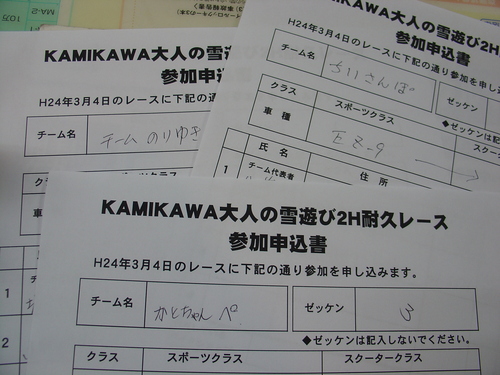 MA-2
10万
KAMIKAWA大人の雪遊び2H
参加申込書
H24年3月4日のレースに下記の通り参加を申し込
チーム名 ちいさんぽ ゼッケン
◆ゼッケンは記
クラス スポーツクラス スクー
車種 EZ-9
氏名 住所
1 チーム代表者
KAMIKAWA大人の雪遊
参加申
H24年3月4日のレースに下記の
チーム名 チームのりゆき
ク
車
1
2
KAMIKAWA大人の雪遊び2H耐久レース
参加申込書
H24年3月4日のレースに下記の通り参加を申し込みます。
チーム名 かとちゃんペ ゼッケン 3
◆ゼッケンは記入しないでください。
クラス スポーツクラス スクータークラス